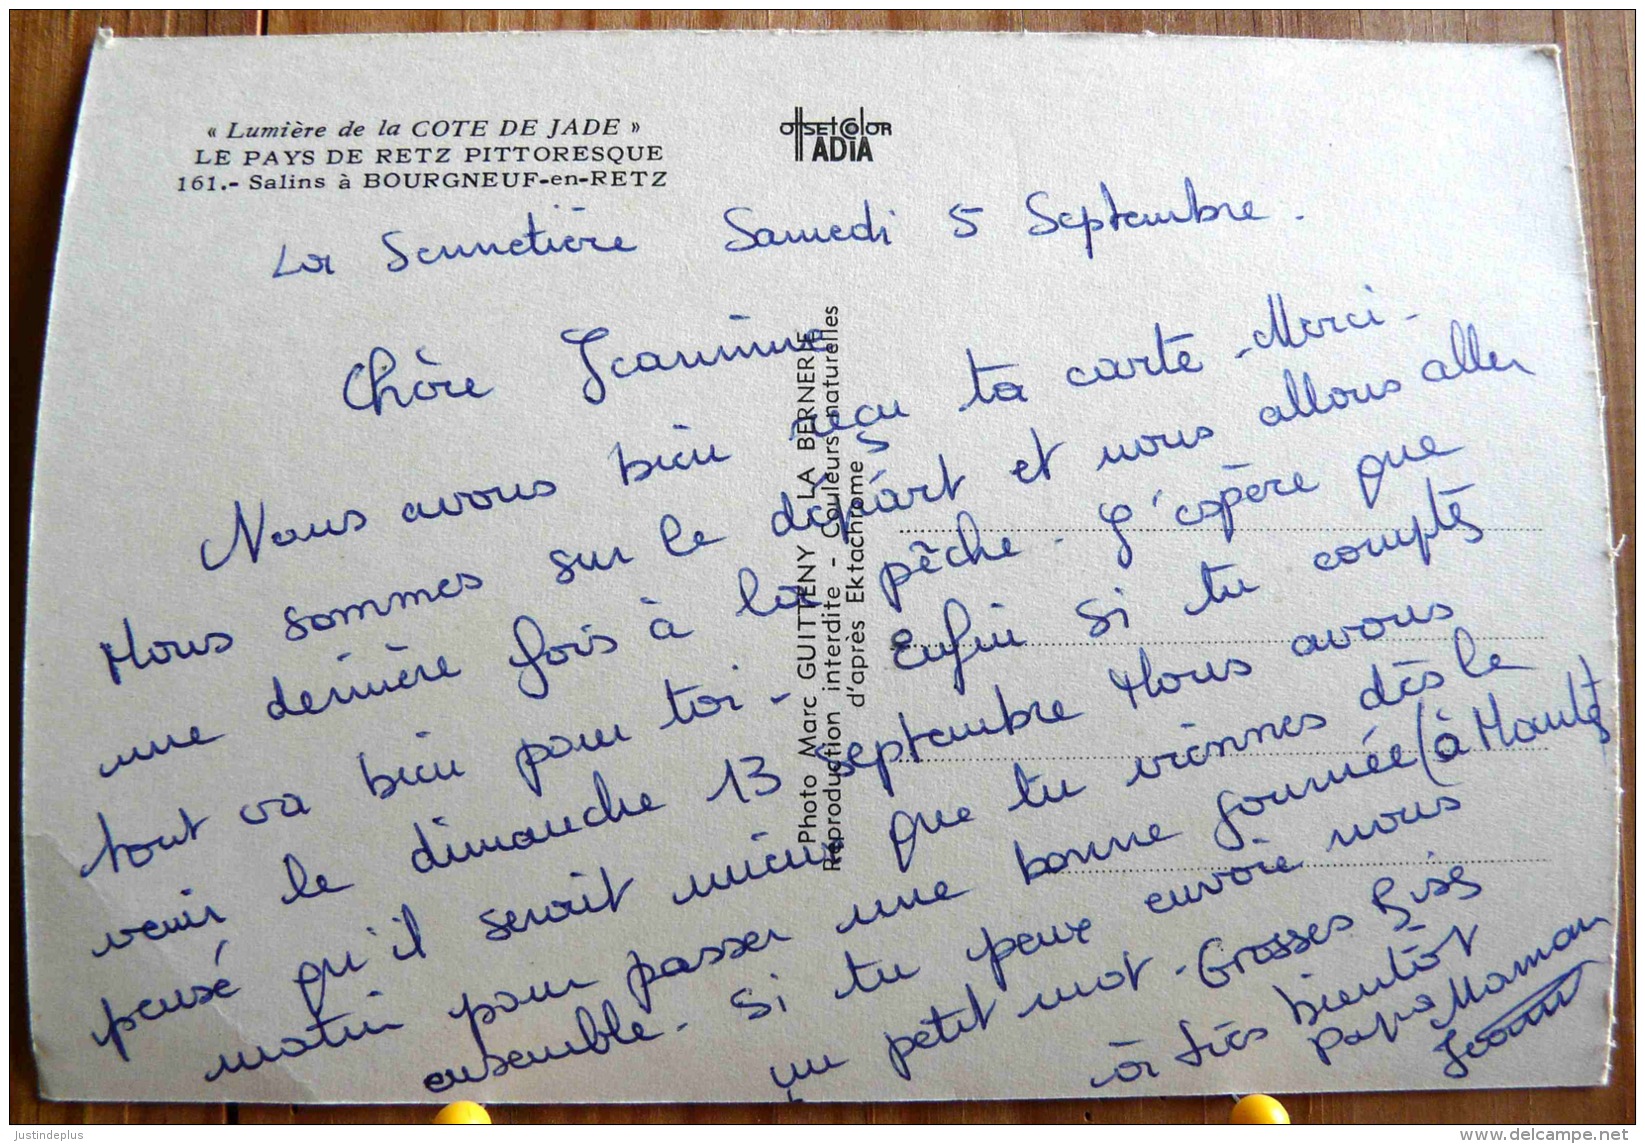 « Lumière de la COTE DE JADE »
LE PAYS DE RETZ PITTORESQUE
161.- Salins à BOURGNEUF-en-RETZ
OffSET COlOR
IADIA
La Sennetière Samedi 5 Septembre.
Chère Jeannine
Nous avons bien reçu ta carte - Merci -
Nous sommes sur le départ et nous allons aller
une dernière fois à la pêche - J'espère que
tout va bien pour toi - Enfin si tu comptes
venir le dimanche 13 septembre Nous avons
pensé qu'il serait mieux que tu viennes dès le
matin pour passer une bonne journée (à Nantes)
ensemble - Si tu peux envoie nous
un petit mot - Grosses Bises
à très bientôt
Papa Maman
Photo Marc GUITTENY LA BERNERIE
Reproduction interdite - Couleurs naturelles
d'après Ektachrome
justindeplus
www.delcampe.net